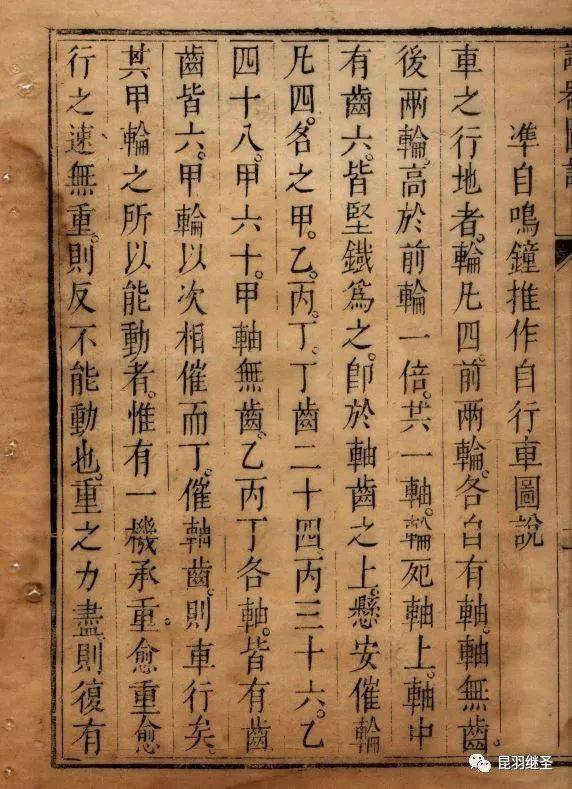 諸器圖說
準自鳴鐘推作自行車圖說
車之行地者。輪凡四。前兩輪。各自有軸。軸無齒。
後兩輪。高於前輪一倍。共一軸。輪死軸上。軸中
有齒六。皆堅鐵爲之。卽於軸齒之上。懸安催輪
凡四。名之甲。乙。丙。丁。丁齒二十四。丙三十六。乙
四十八。甲六十。甲軸無齒。乙丙丁各軸。皆有齒
齒皆六。甲輪以次相催而丁。催軸齒。則車行矣。
其甲輪之所以能動者。惟有一機承重愈重愈
行之速無重。則反不能動也。重之力盡。則復有
昆羽继圣